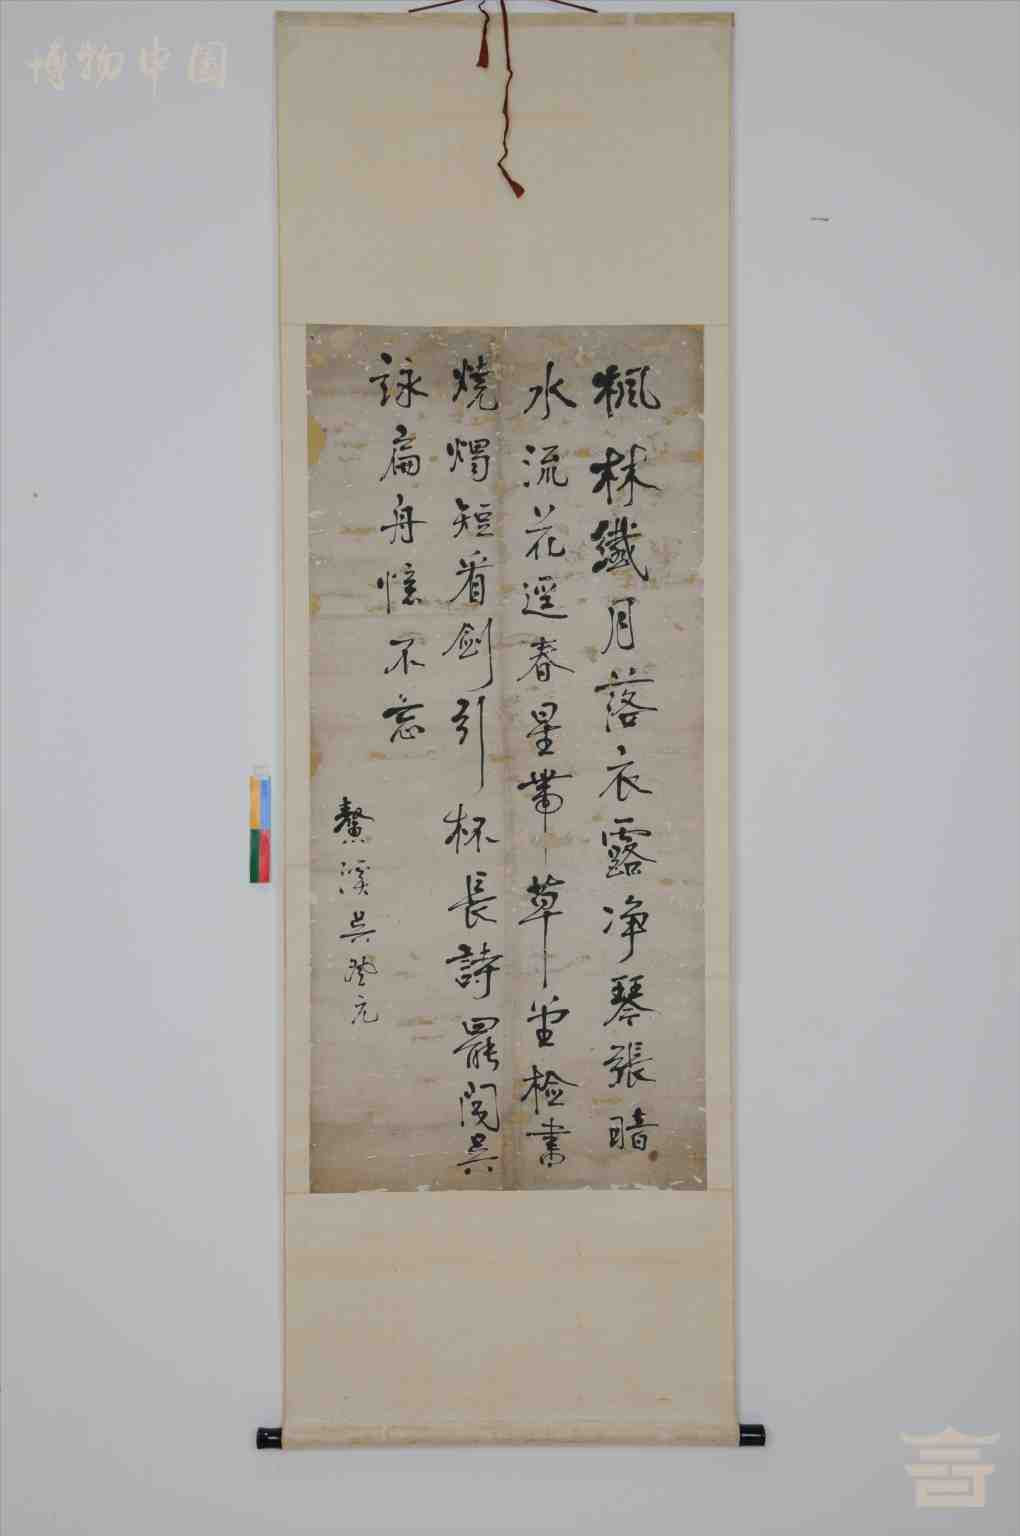 博物中国
楓林纖月落衣露净琴張暗
水流花逕春星帶草堂檢書
燒燭短看劍引杯長詩罷聞吳
詠扁舟憶不忘
鰲溪吳澄元